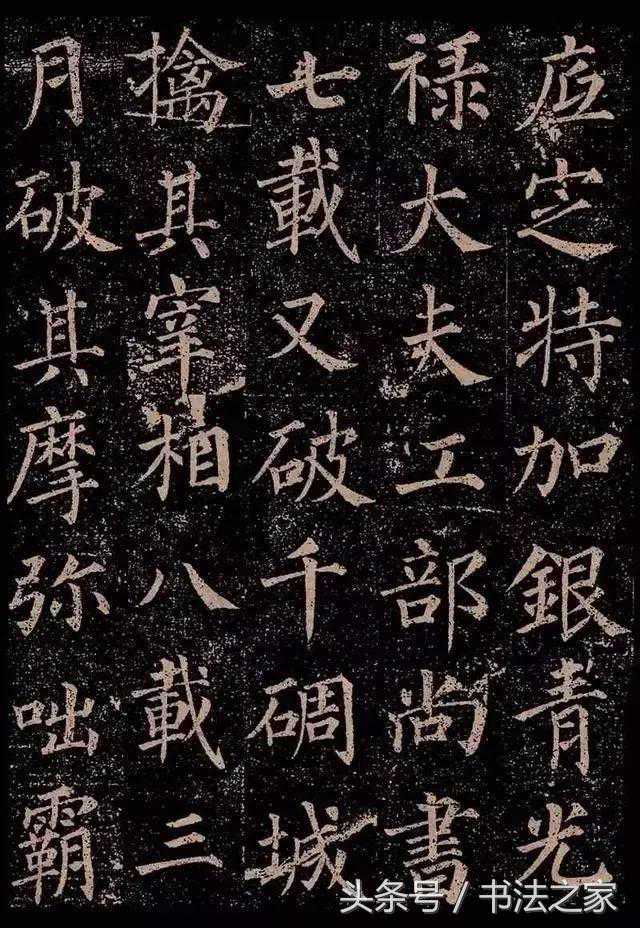 底定特加銀青光
禄大夫工部尚書
七載又破千碉城
擒其宰相八載三
月破其摩弥咄霸
头条号 / 书法之家